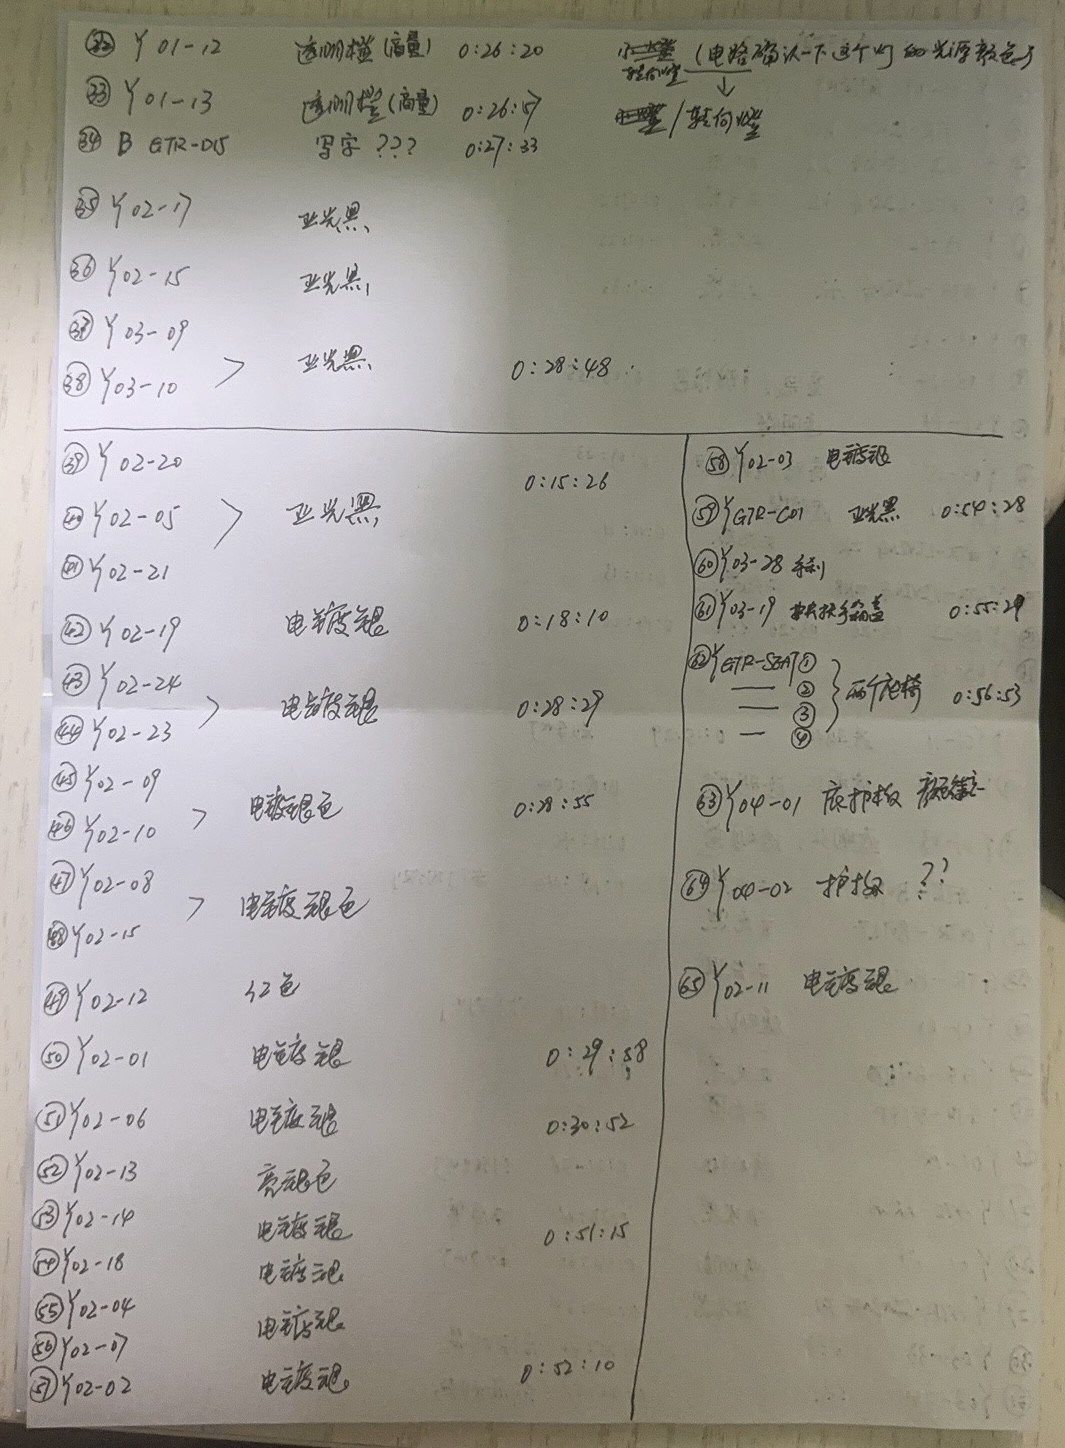 ㉜ Y 01-12 透明橙(高量) 0:26:20 (电路确认一下这个灯的光源颜色)
转向灯
㉝ Y 01-13 透明橙(高量) 0:26:57 /转向灯
㉞ B GTR-D15 写字 ??? 0:27:33
㉟ Y02-17 亚光黑
㊱ Y02-15 亚光黑
㊲ Y03-09
亚光黑 0:28:48
㊳ Y03-10
㊴ Y02-20
0:15:26
㊵ Y02-05 > 亚光黑
㊶ Y02-21
㊷ Y02-19 电镀银 0:18:10
㊸ Y02-24
> 电镀银 0:28:29
㊹ Y02-23
㊺ Y02-09
> 电镀银色 0:28:55
㊻ Y02-10
㊼ Y02-08
> 电镀银色
㊽ Y02-15
㊾ Y02-12 红色
㊿ Y02-01 电镀银 0:29:58
(51) Y02-06 电镀银 0:30:52
(52) Y02-13 亮银色
(53) Y02-14 电镀银 0:51:15
(54) Y02-18 电镀银
(55) Y02-04
电镀银
(56) Y02-07
(57) Y02-02 电镀银 0:52:10
(58) Y02-03 电镀银
(59) Y GTR-C01 亚光黑 0:54:28
(60) Y03-28 手刹
(61) Y03-19 扶手箱盖 0:55:29
(62) Y GTR-SEAT ①
— ② 两个座椅 0:56:53
— ③
— ④
(63) Y04-01 底护板
(64) Y04-02 护板 ??
(65) Y02-11 电镀银